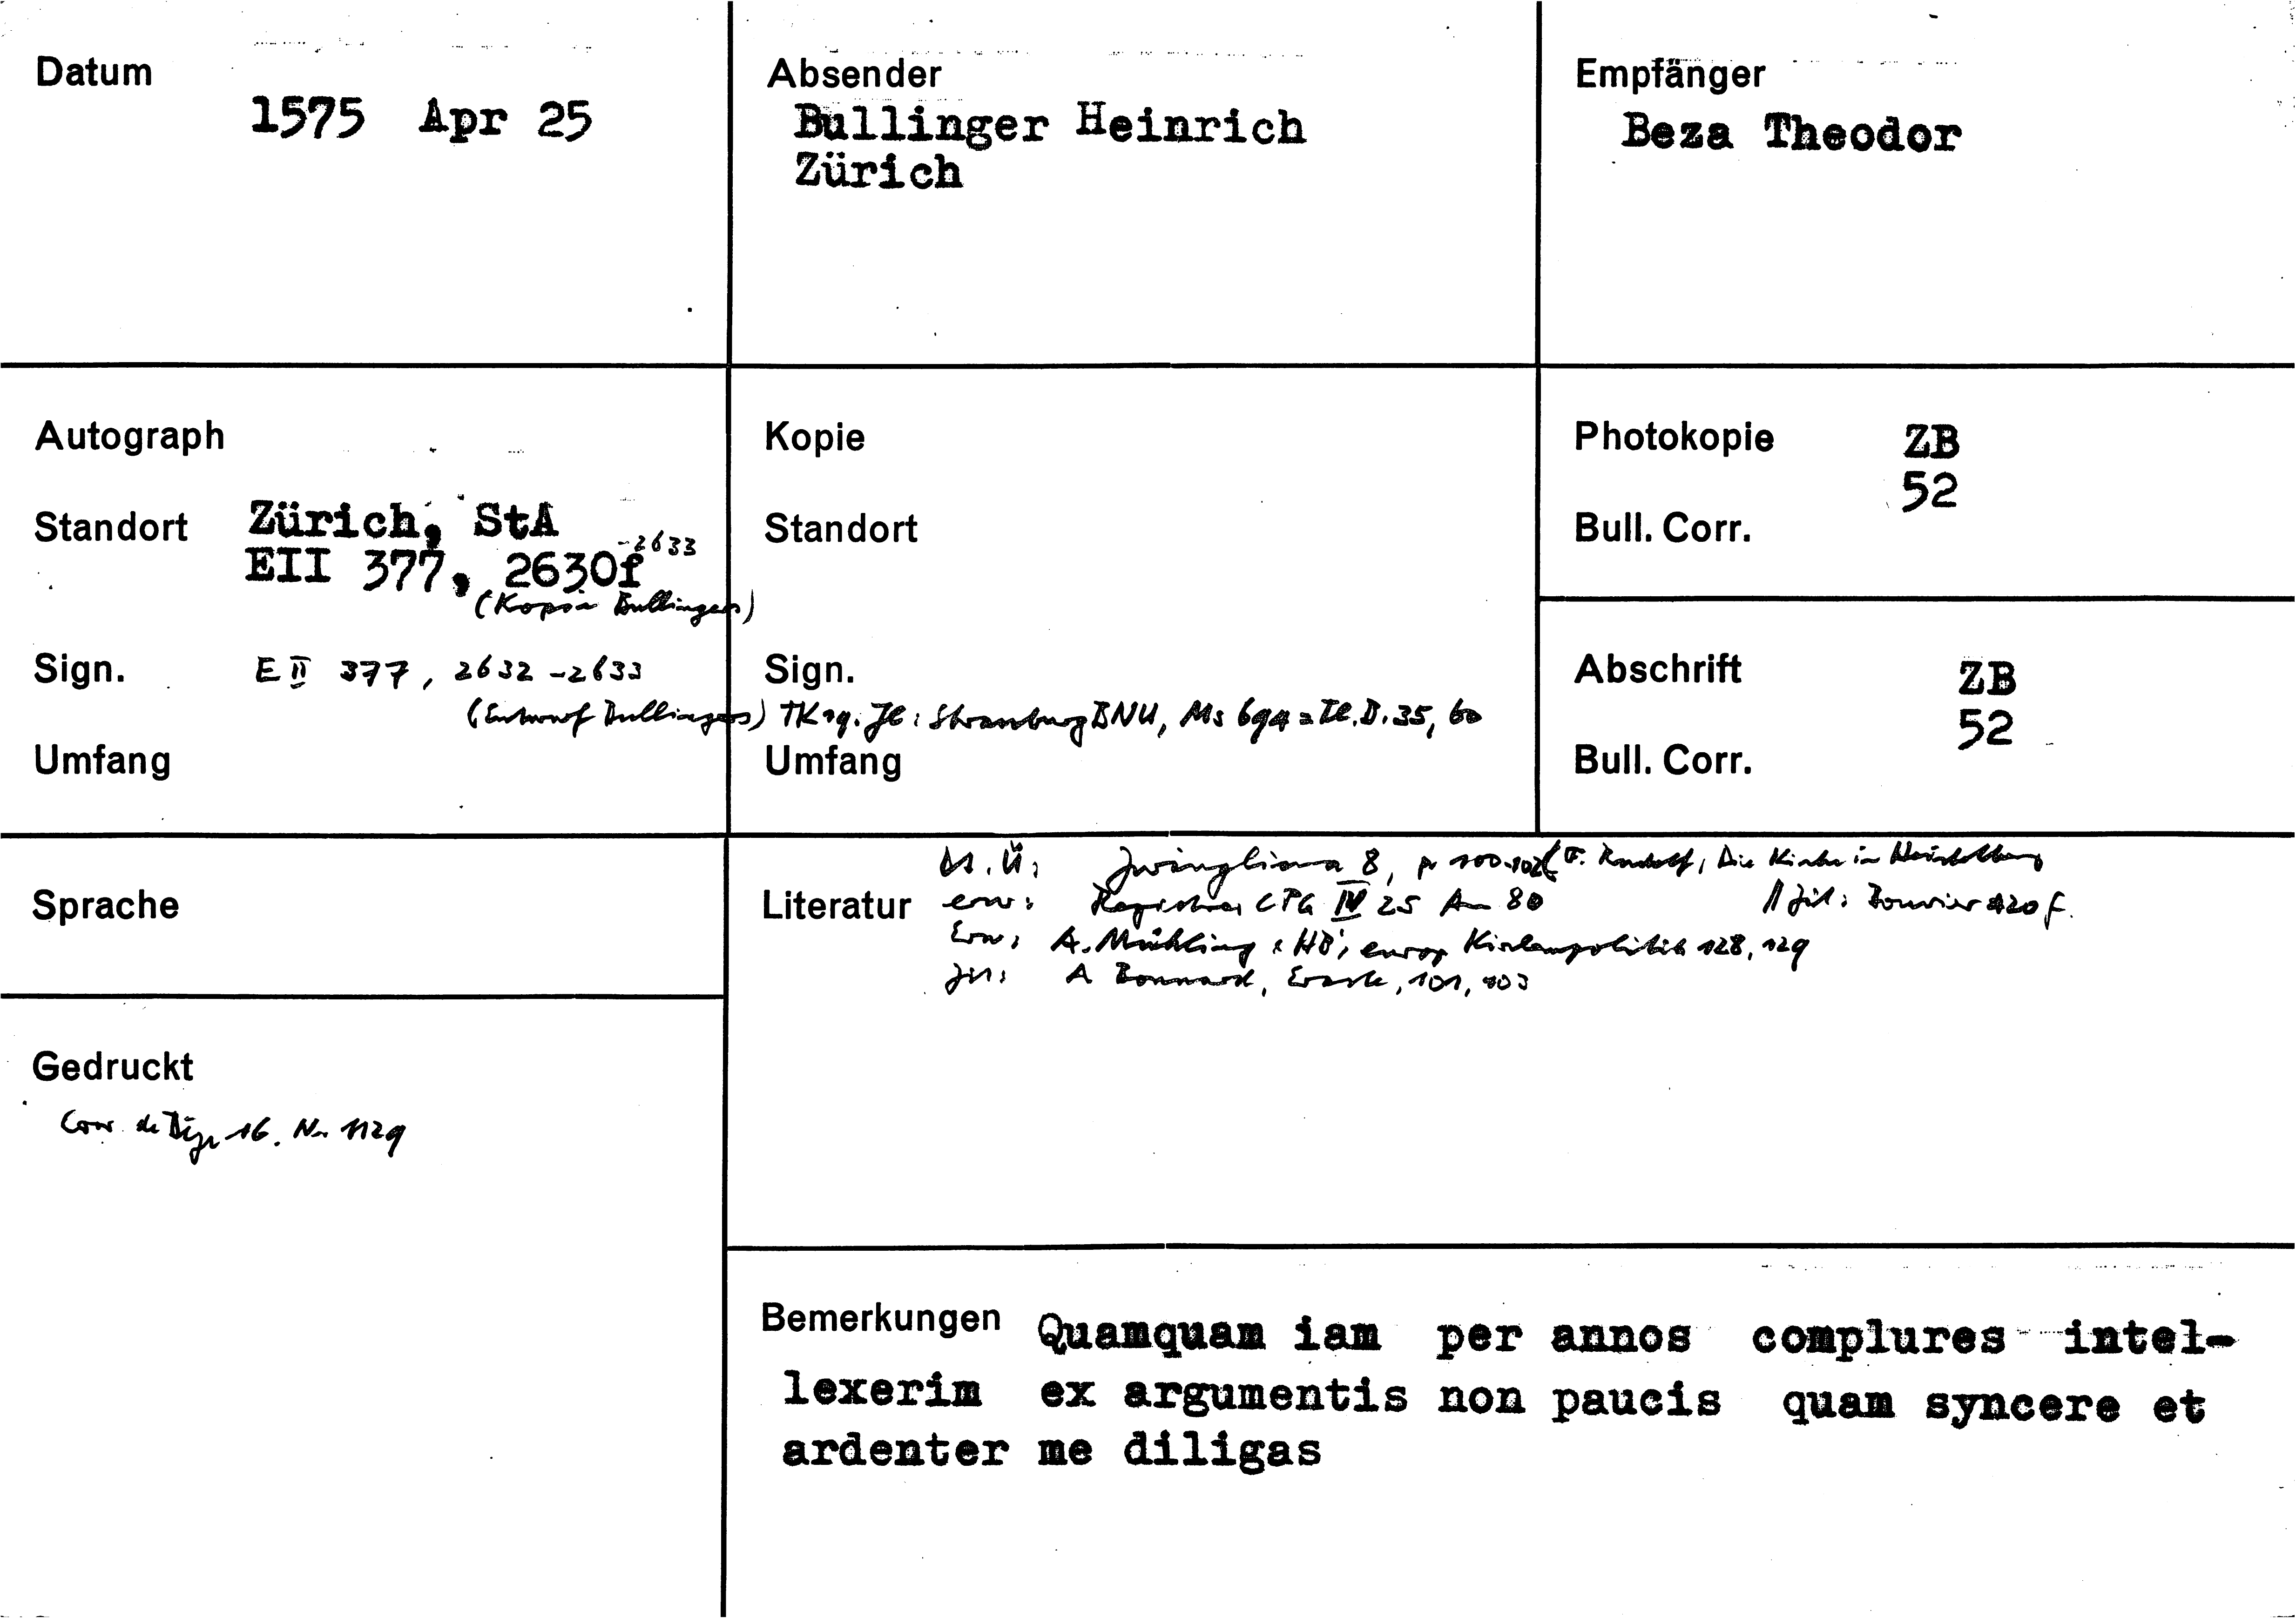 Datum
1575 Apr 25
Absender
Bullinger Heinrich
Zürich
Empfänger
Beza Theodor
Autograph
Standort Zürich, StA
EII 377, 2630f -2633
(Kopie Bullingers)
Sign. E II 377, 2632-2633
(Entwurf Bullingers)
Umfang
Kopie
Standort
Sign.
Strassburg BNU, Ms 694 = 35, 60
Umfang
Photokopie ZB
52
Bull. Corr.
Abschrift ZB
52
Bull. Corr.
Sprache
Gedruckt
Corr. de Bèze 16. Nr 1129
dt. Ü: Zwingliana 8, p 100-102 (F. Rudolf, Die Kirche in Heidelberg
Literatur erw: CPG IV 25 Anm 80 // Zit: Bouvier 420 f.
Erw: A. Mühling: HB's europ Kirchenpolitik 128, 129
Zit: A Bonnard, Eraste, 101, 103
Bemerkungen Quamquam iam per annos complures intel-
lexerim ex argumentis non paucis quam syncere et
ardenter me diligas